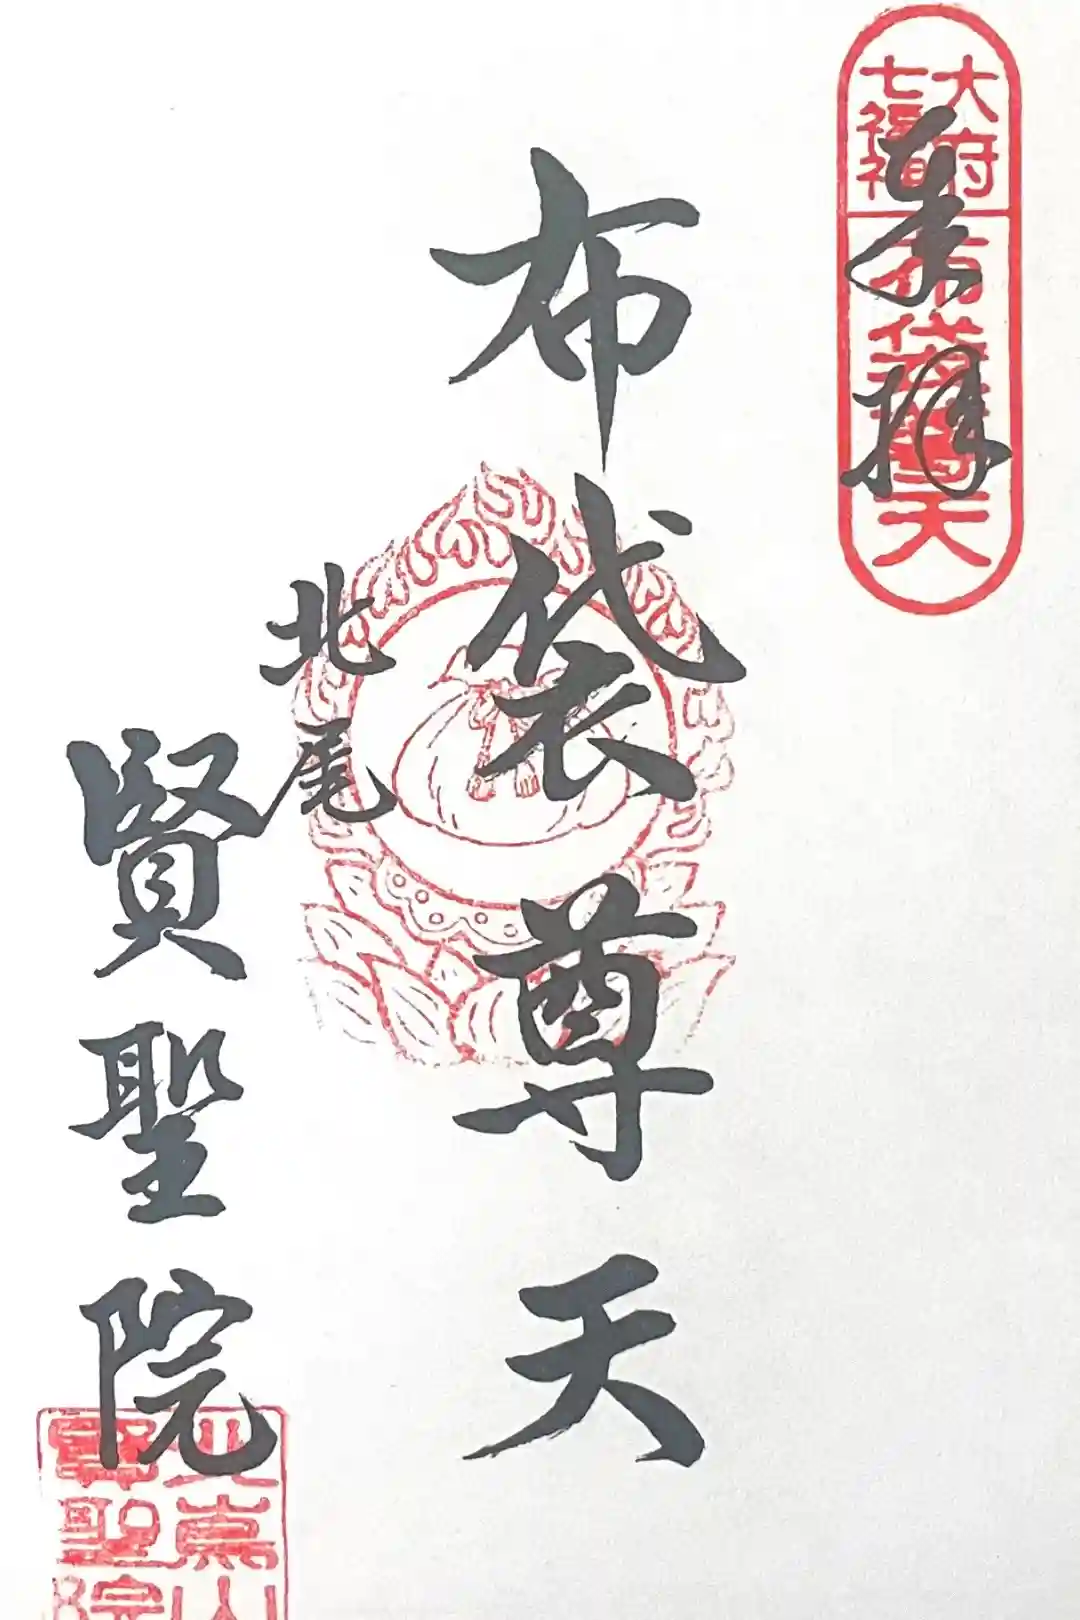 大府
七福神
布袋尊天
奉拝
布袋尊天
北尾
賢聖院
賢聖院